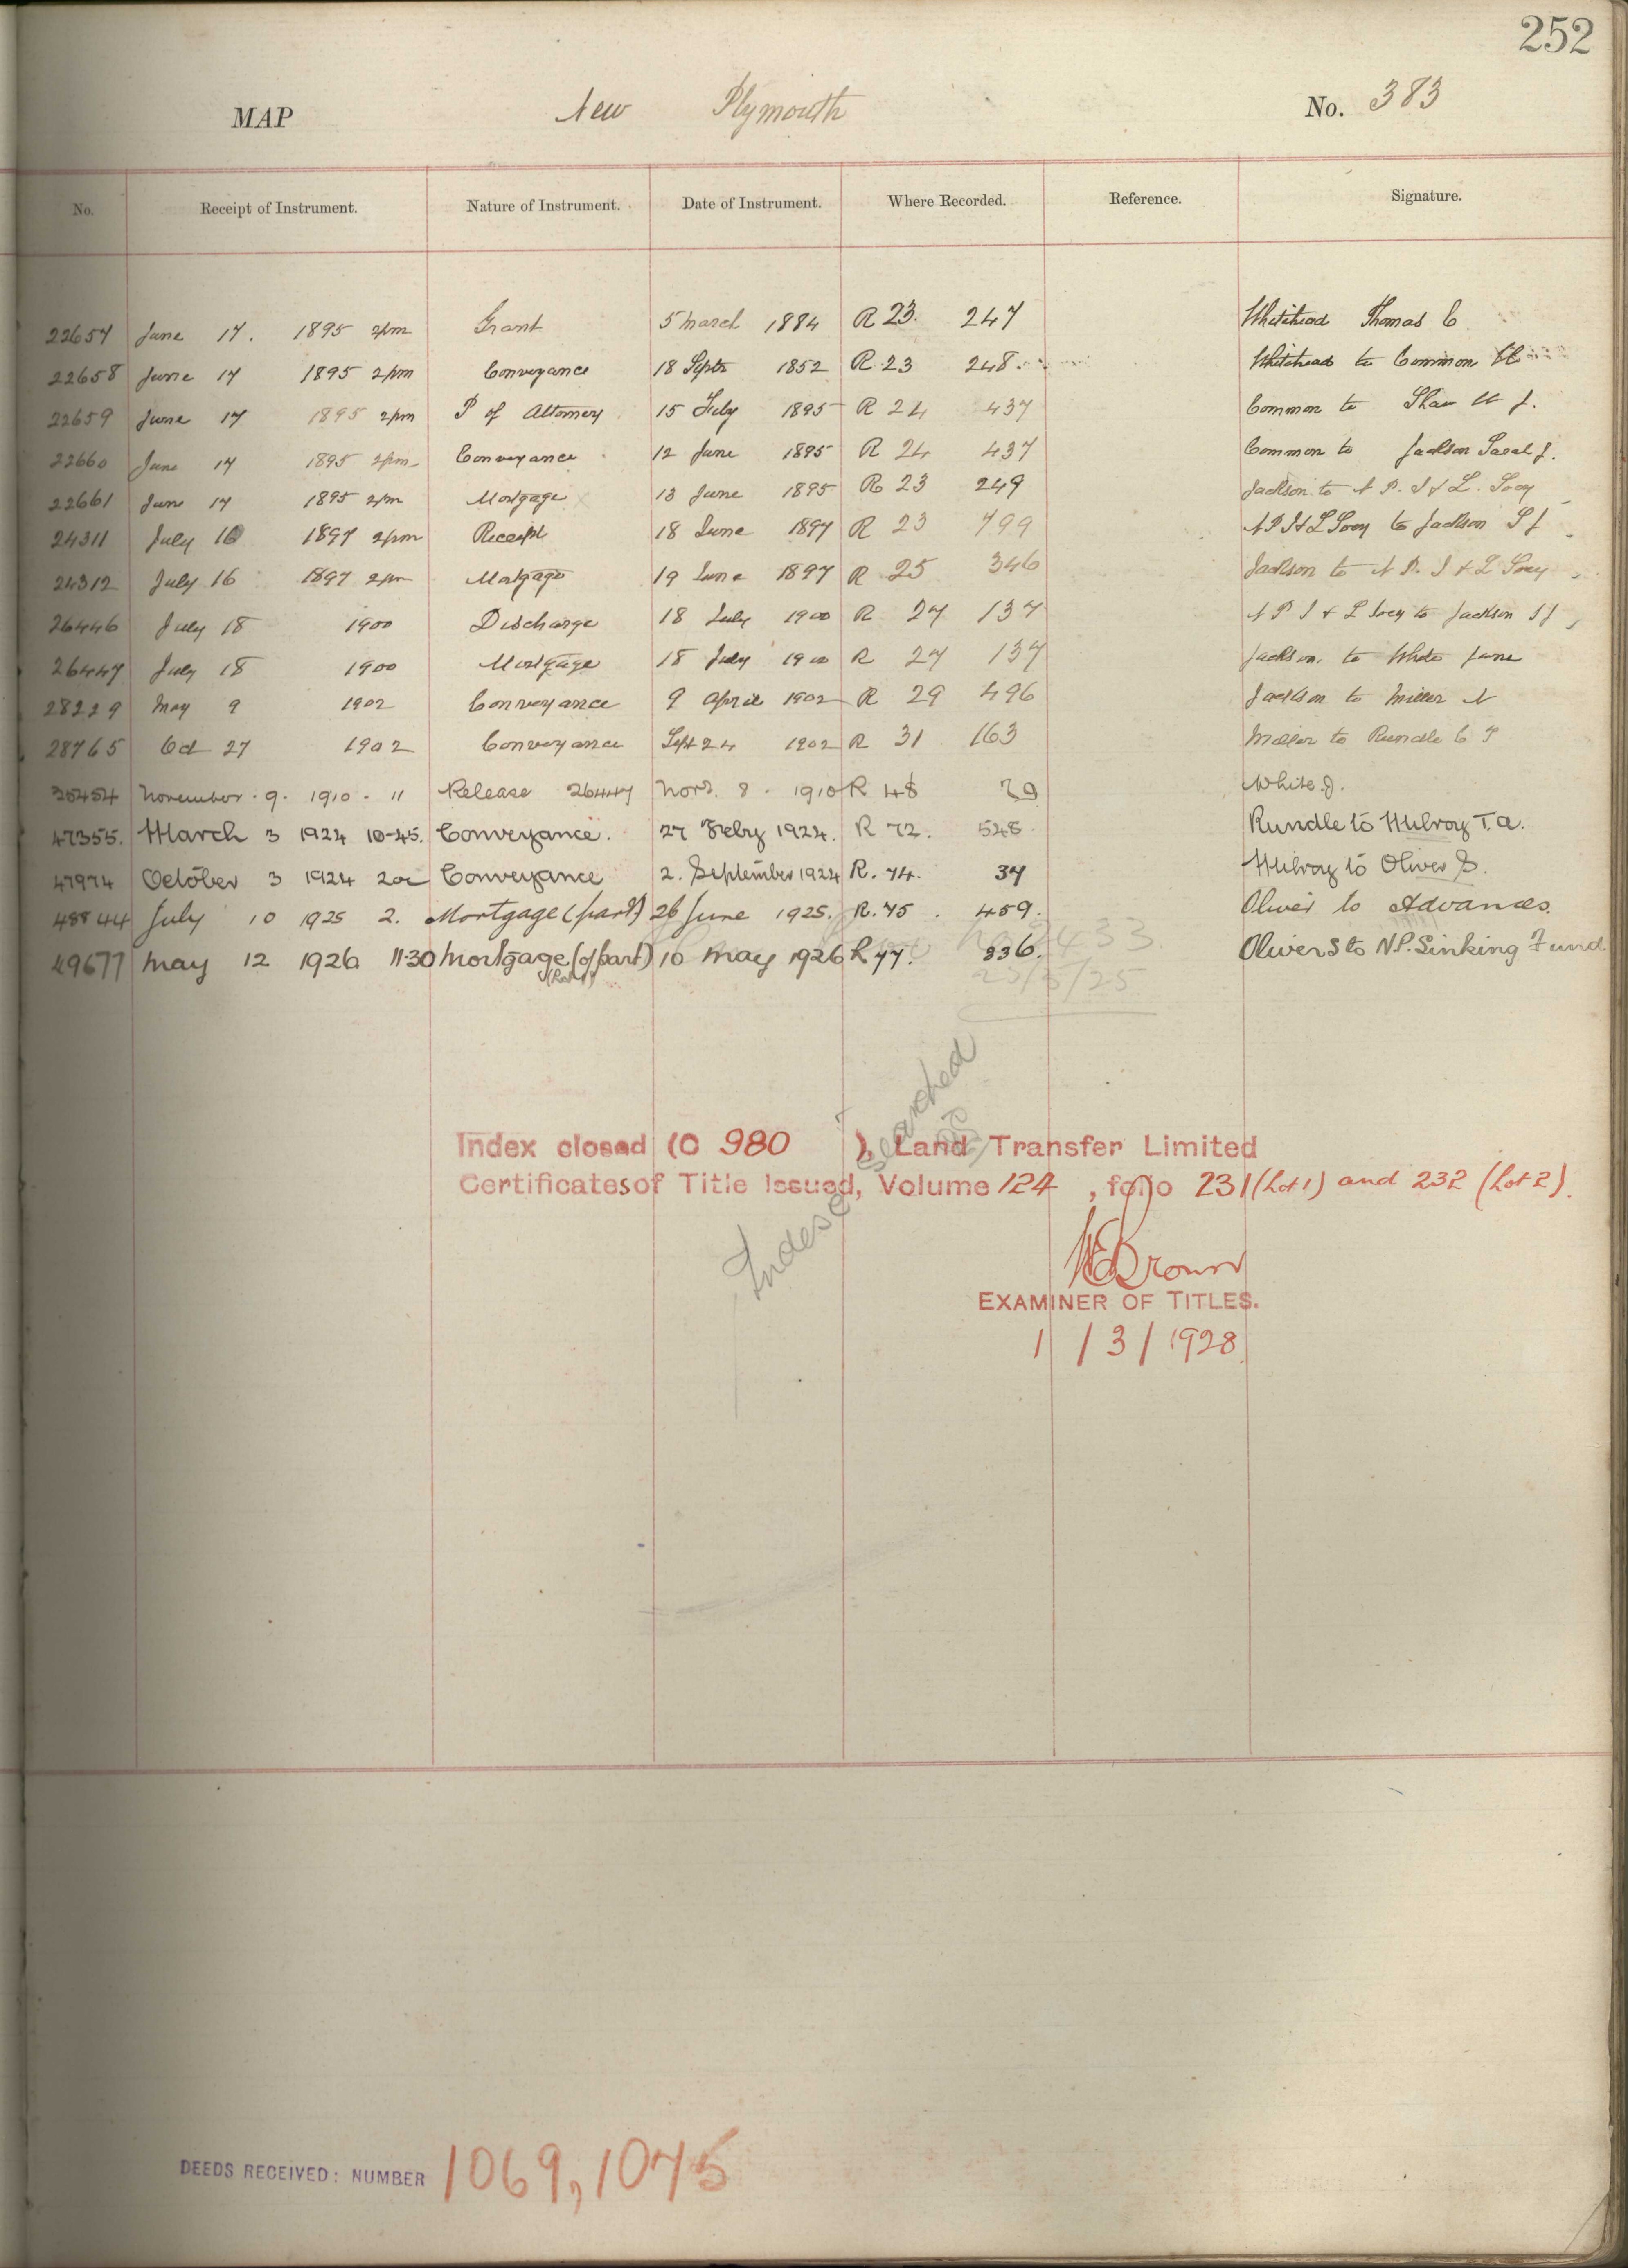 252
MAP New Plymouth No. 383
No. Receipt of Instrument. Nature of Instrument. Date of Instrument. Where Recorded. Reference. Signature.
22657 June 17. 1895 2pm Grant 5 March 1884 R 23. 247 Whitehead Thomas C.
22658 June 17 1895 2pm Conveyance 18 Septr 1852 R 23 248 Whitehead to Common
22659 June 17 1895 2pm P of Attorney 15 July 1895 R 24 437 Common to Shaw J.
22660 June 17 1895 2pm Conveyance 12 June 1895 R 24 437 Common to Jackson J.
22661 June 17 1895 2pm Mortgage 13 June 1895 R 23 249 Jackson to N P. I & L. Socy
24311 July 16 1897 2pm Receipt 18 June 1897 R 23 799 N P I & L Socy to Jackson S J
24312 July 16 1897 2pm Mortgage 19 June 1897 R 25 346 Jackson to N P. I & L Socy
26446 July 18 1900 Discharge 18 July 1900 R 27 137 N P I & L Socy to Jackson S J
26447 July 18 1900 Mortgage 18 July 1900 R 27 137 Jackson to White Jane
28229 May 9 1902 Conveyance 9 April 1902 R 29 496 Jackson to Miller N
28765 Oct 27 1902 Conveyance Sept 24 1902 R 31 163 Miller to Rundle C T
November. 9. 1910. 11 Release 26447 Novr. 8. 1910 R 48 79 White J.
47355. March 3 1924 10-45. Conveyance. 27 Feby 1924. R 72. 528 Rundle to T.A.
47974 October 3 1924 Conveyance 2. September 1924 R. 74. 37 to Oliver S.
48844 July 10 1925 2. Mortgage (part) 26 June 1925. R. 75. 459. Oliver to Advances.
49677 May 12 1926 11.30 Mortgage (of part) 10 May 1926 R 77. 336. Oliver S to N.P. Sinking Fund.
23/5/25
Index searched
Index closed (C 980 ), Land Transfer Limited
Certificates of Title Issued, Volume 124, folio 231 (Lot 1) and 232 (Lot 2).
Brown
EXAMINER OF TITLES.
1/3/1928.
DEEDS RECEIVED: NUMBER 1069, 1075